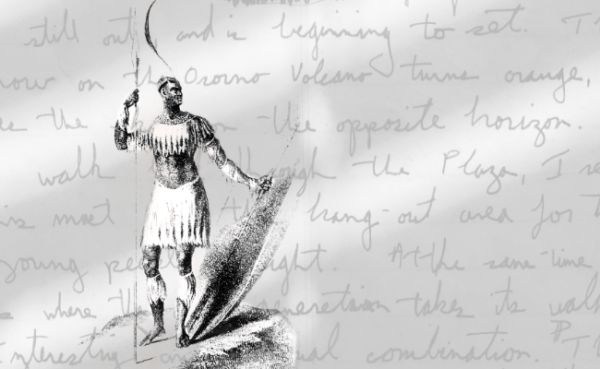 still out and is beginning to set. T
now on th Osorno Volcano turns orange,
the on the opposite horizon.
walk through the Plaza, I
is most hang-out area for
young pe ight. At the same time
where th generation takes its walk
interesting an ual combination.